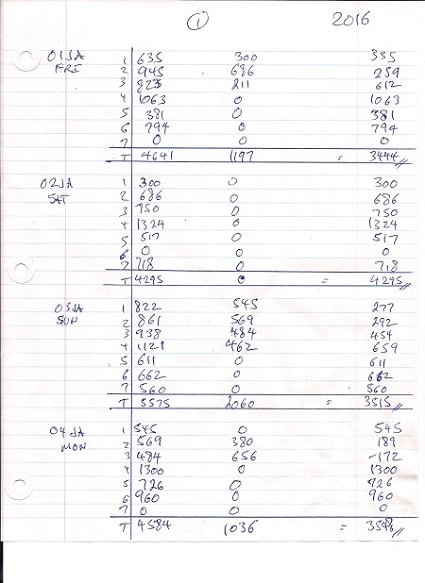 1 2016
01JA 1 635 300 335
FRI 2 945 686 259
3 823 211 612
4 1063 0 1063
5 381 0 381
6 794 0 794
7 0 0 0
T 4641 1197 = 3444
02JA 1 300 0 300
SAT 2 686 0 686
3 750 0 750
4 1324 0 1324
5 517 0 517
6 0 0 0
7 718 0 718
T 4295 0 = 4295
03JA 1 822 545 277
SUN 2 861 569 292
3 938 484 454
4 1121 462 659
5 611 0 611
6 662 0 662
7 560 0 560
T 5575 2060 = 3515
04JA 1 545 0 545
MON 2 569 380 189
3 484 656 -172
4 1300 0 1300
5 726 0 726
6 960 0 960
7 0 0 0
T 4584 1036 = 3548